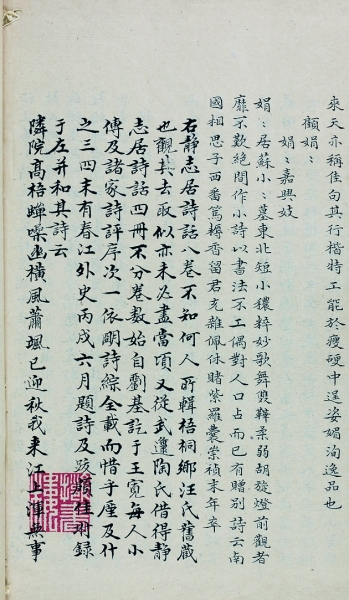 來天亦稱佳句其行楷特工能於瘦硬中逞姿媚洵逸品也
顧娟:
娟:嘉興妓
娟:居蘇小:墓東北短小穠粹妙歌舞雙鞾柔弱胡旋燈前觀者
靡不歎絕間作小詩以書法不工偶對人口占而已有贈別詩云南
國相思子西番篤耨香留君充雜佩休賭紫羅囊崇禎末年卒
右靜志居詩話八卷不知何人所輯梧桐鄉汪氏舊藏
也觀其去取似亦未必盡當項又從武邍陶氏借得靜
志居詩話四冊不分卷數始自劉基訖于王寛每人小
傳及諸家詩評序次一依明詩綜全載而惜乎厪及什
之三四末有春江外史丙戌六月題詩及跋頗佳附錄
于左并和其詩云
隣院高梧蟬噪幽橫風蕭颯已迎秋我來江上渾無事